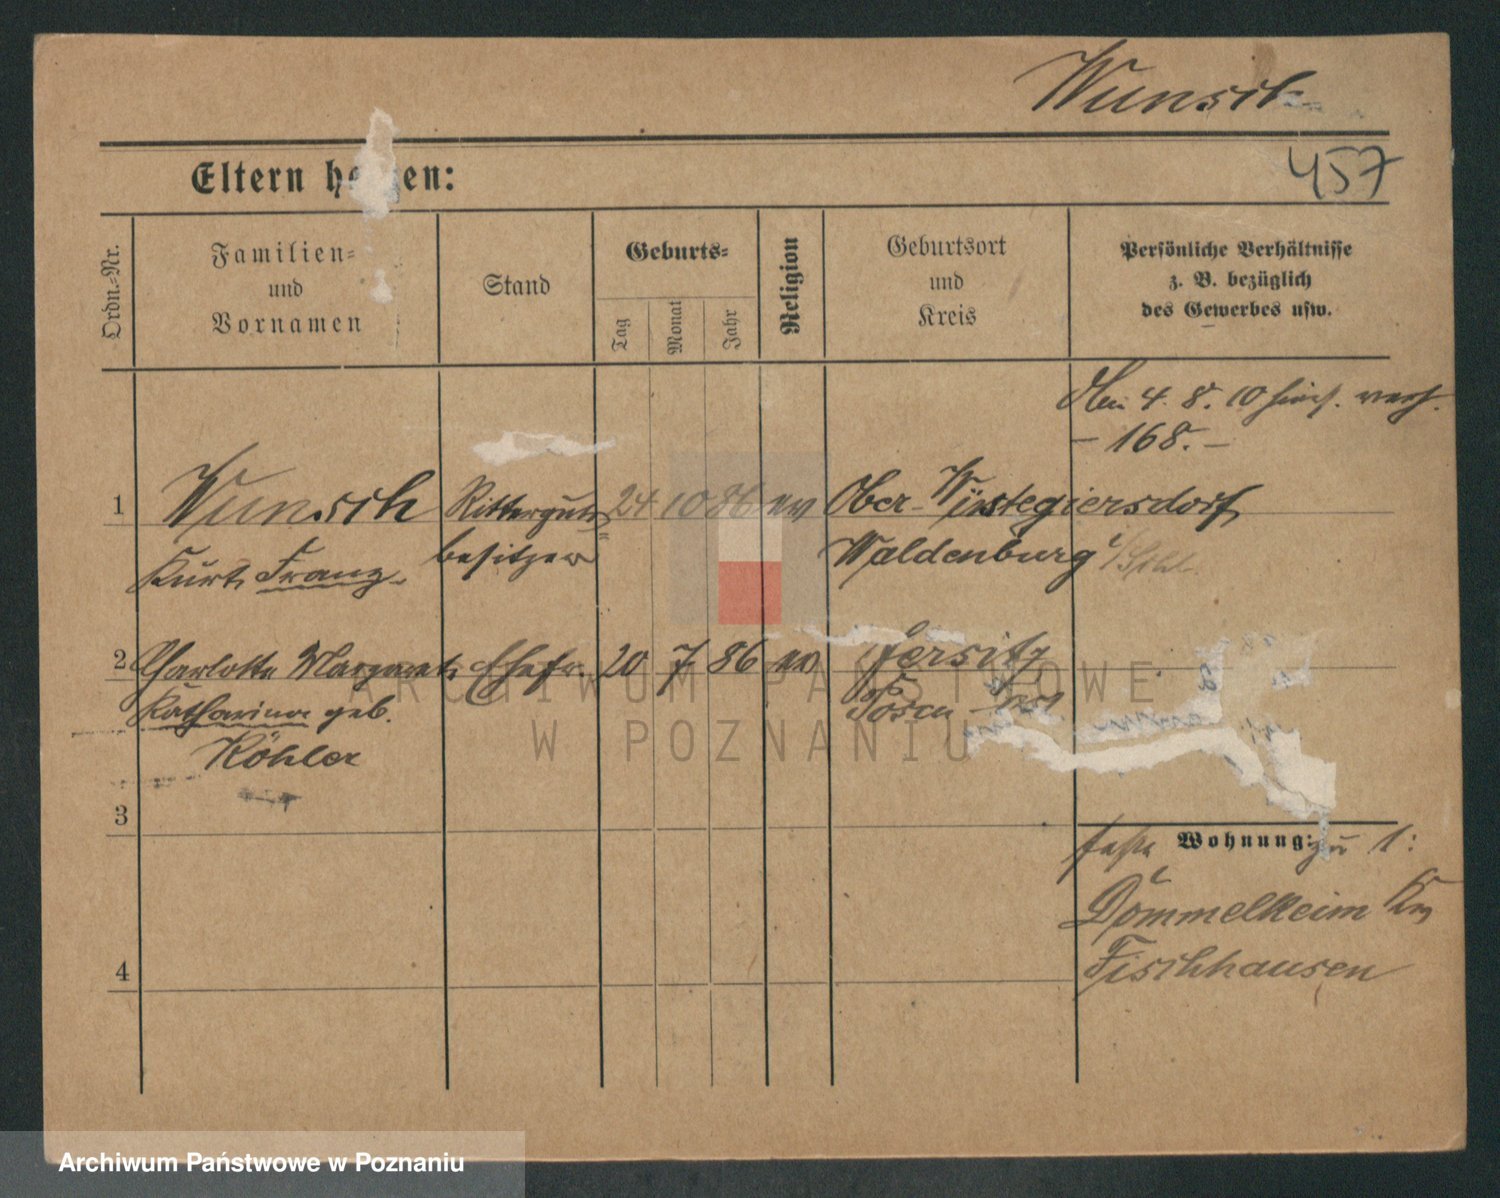 Wunsch
457
Eltern h en:
Ordn.-Nr.
Familien-
und
Vornamen
Stand
Geburts-
Tag
Monat
Jahr
Religion
Geburtsort
und
Kreis
Persönliche Verhältnisse
z. B. bezüglich
des Gewerbes usw.
4. 8. 10
- 168. -
1 Wunsch Ritterguts 24 10 86 ev Ober-Wüstegiersdorf
Kurt Franz. besitzer Waldenburg
2 Charlotte Margarete Ehefr. 20 7 86 ev Jersitz
Katharina geb. Posen
Köhler
3
Wohnung: zu 1:
Dommelkeim
Fischhausen
4
ARCHIWUM PAŃSTWOWE
W POZNANIU
Archiwum Państwowe w Poznaniu